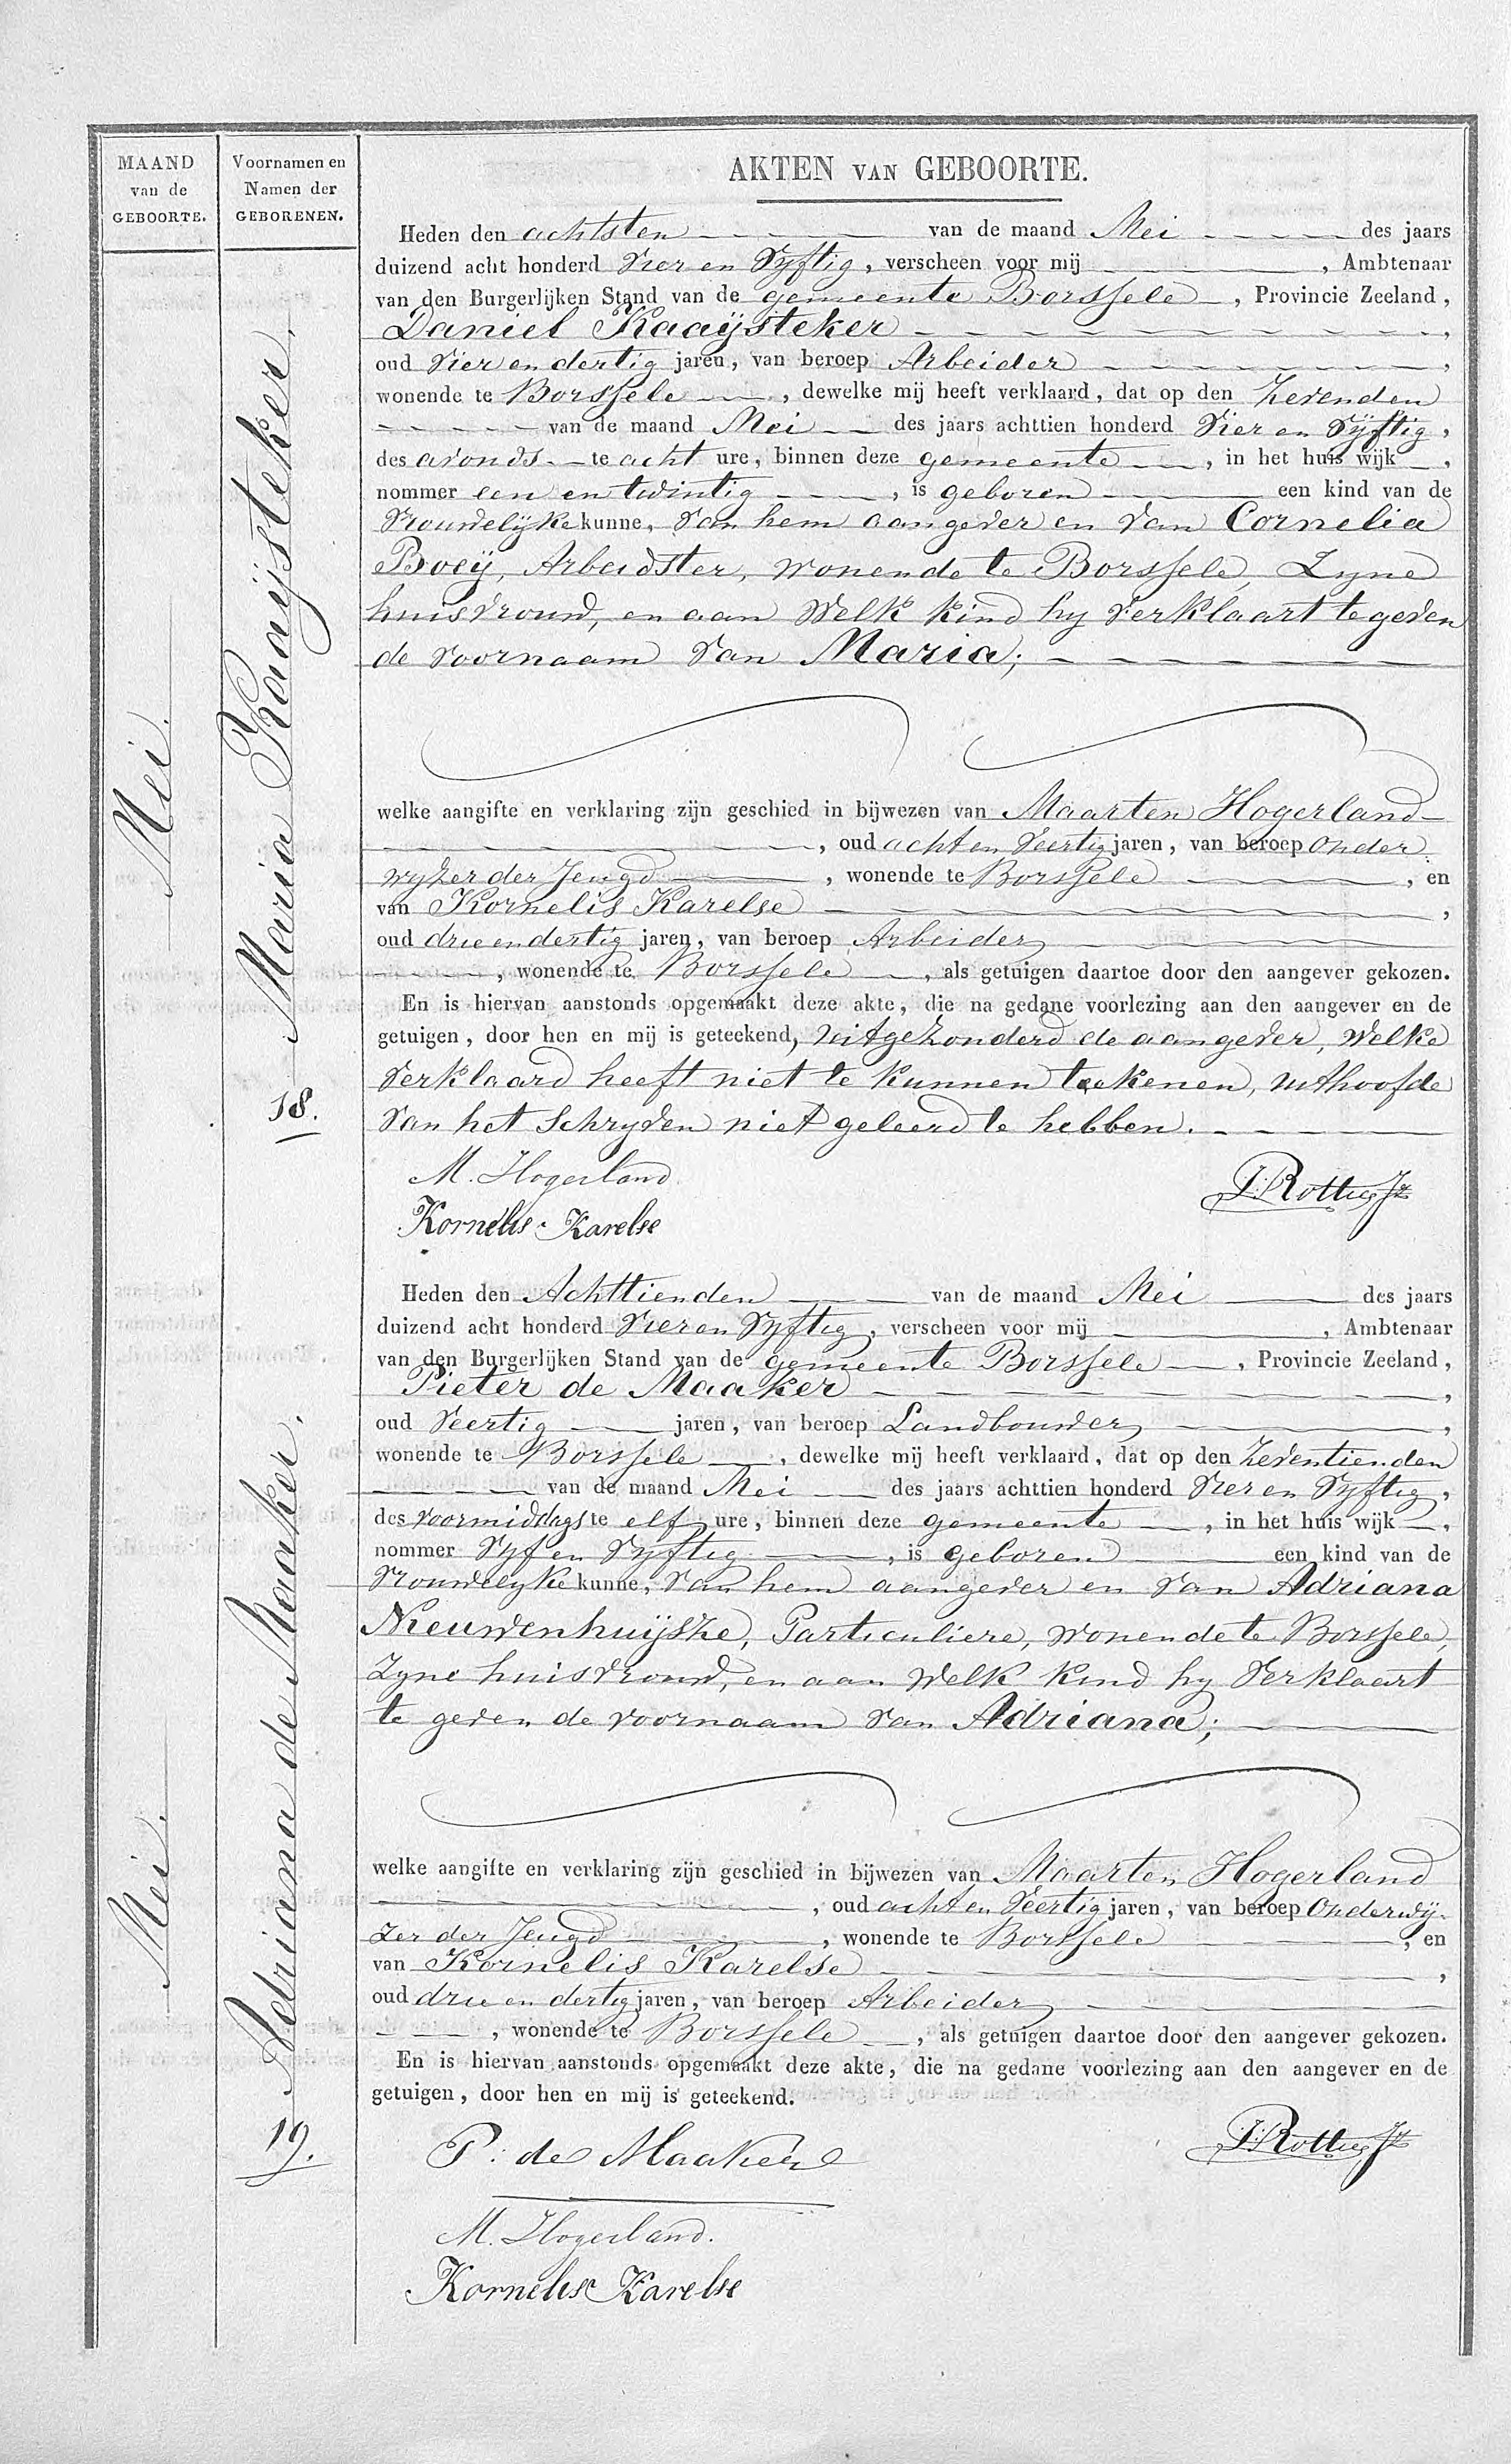 MAAND
van de
GEBOORTE.
Voornamen en
Namen der
GEBORENEN.
AKTEN VAN GEBOORTE.
Mei.
Maria Kaaijsteker.
18.
Heden den achtsten van de maand Mei des jaars
duizend acht honderd Vier en Vyftig, verscheen voor mij , Ambtenaar
van den Burgerlijken Stand van de gemeente Borssele, Provincie Zeeland,
Daniel Kaaijsteker,
oud Vier en dertig jaren, van beroep Arbeider,
wonende te Borssele, dewelke mij heeft verklaard, dat op den Zevenden
van de maand Mei des jaars achttien honderd Vier en Vyftig,
des avonds te acht ure, binnen deze gemeente, in het huis wijk ,
nommer een en twintig, is geboren een kind van de
Vrouwelijke kunne, van hem aangever en van Cornelia
Boeij, Arbeidster, wonende te Borssele, Zyne
huisvrouw, en aan Welk kind hy Verklaart te geven
de Voornaam Van Maria;
welke aangifte en verklaring zijn geschied in bijwezen van Maarten Hogerland
, oud acht en Veertig jaren, van beroep Onder
wyzer der Jeugd, wonende te Borssele, en
van Kornelis Karelse,
oud drie en dertig jaren, van beroep Arbeider
, wonende te Borssele, als getuigen daartoe door den aangever gekozen.
En is hiervan aanstonds opgemaakt deze akte, die na gedane voorlezing aan den aangever en de
getuigen, door hen en mij is geteekend, uitgezonderd de aangever, Welke
Verklaard heeft niet te kunnen teekenen, uithoofde
Van het Schryven niet geleerd te hebben.
M. Hogerland
Kornelis Karelse
Mei.
Adriana de Maaker.
19.
Heden den Achttienden van de maand Mei des jaars
duizend acht honderd Vier en Vyftig, verscheen voor mij , Ambtenaar
van den Burgerlijken Stand van de gemeente Borssele, Provincie Zeeland,
Pieter de Maaker,
oud Veertig jaren, van beroep Landbouwer,
wonende te Borssele, dewelke mij heeft verklaard, dat op den Zeventienden
van de maand Mei des jaars achttien honderd Vier en Vyftig,
des Voormiddags te elf ure, binnen deze gemeente, in het huis wijk ,
nommer Vyf en Vyftig, is geboren een kind van de
Vrouwelyke kunne, Van hem aangever en Van Adriana
Nieuwenhuijske, Particuliere, wonende te Borssele,
Zyne huisvrouw, en aan Welk kind hy Verklaart
te geven de Voornaam Van Adriana;
welke aangifte en verklaring zijn geschied in bijwezen van Maarten Hogerland
, oud acht en Veertig jaren, van beroep Onderwij-
zer der Jeugd, wonende te Borssele, en
van Kornelis Karelse,
oud drie en dertig jaren, van beroep Arbeider
, wonende te Borssele, als getuigen daartoe door den aangever gekozen.
En is hiervan aanstonds opgemaakt deze akte, die na gedane voorlezing aan den aangever en de
getuigen, door hen en mij is geteekend.
P. de Maaker
M. Hogerland.
Kornelis Karelse